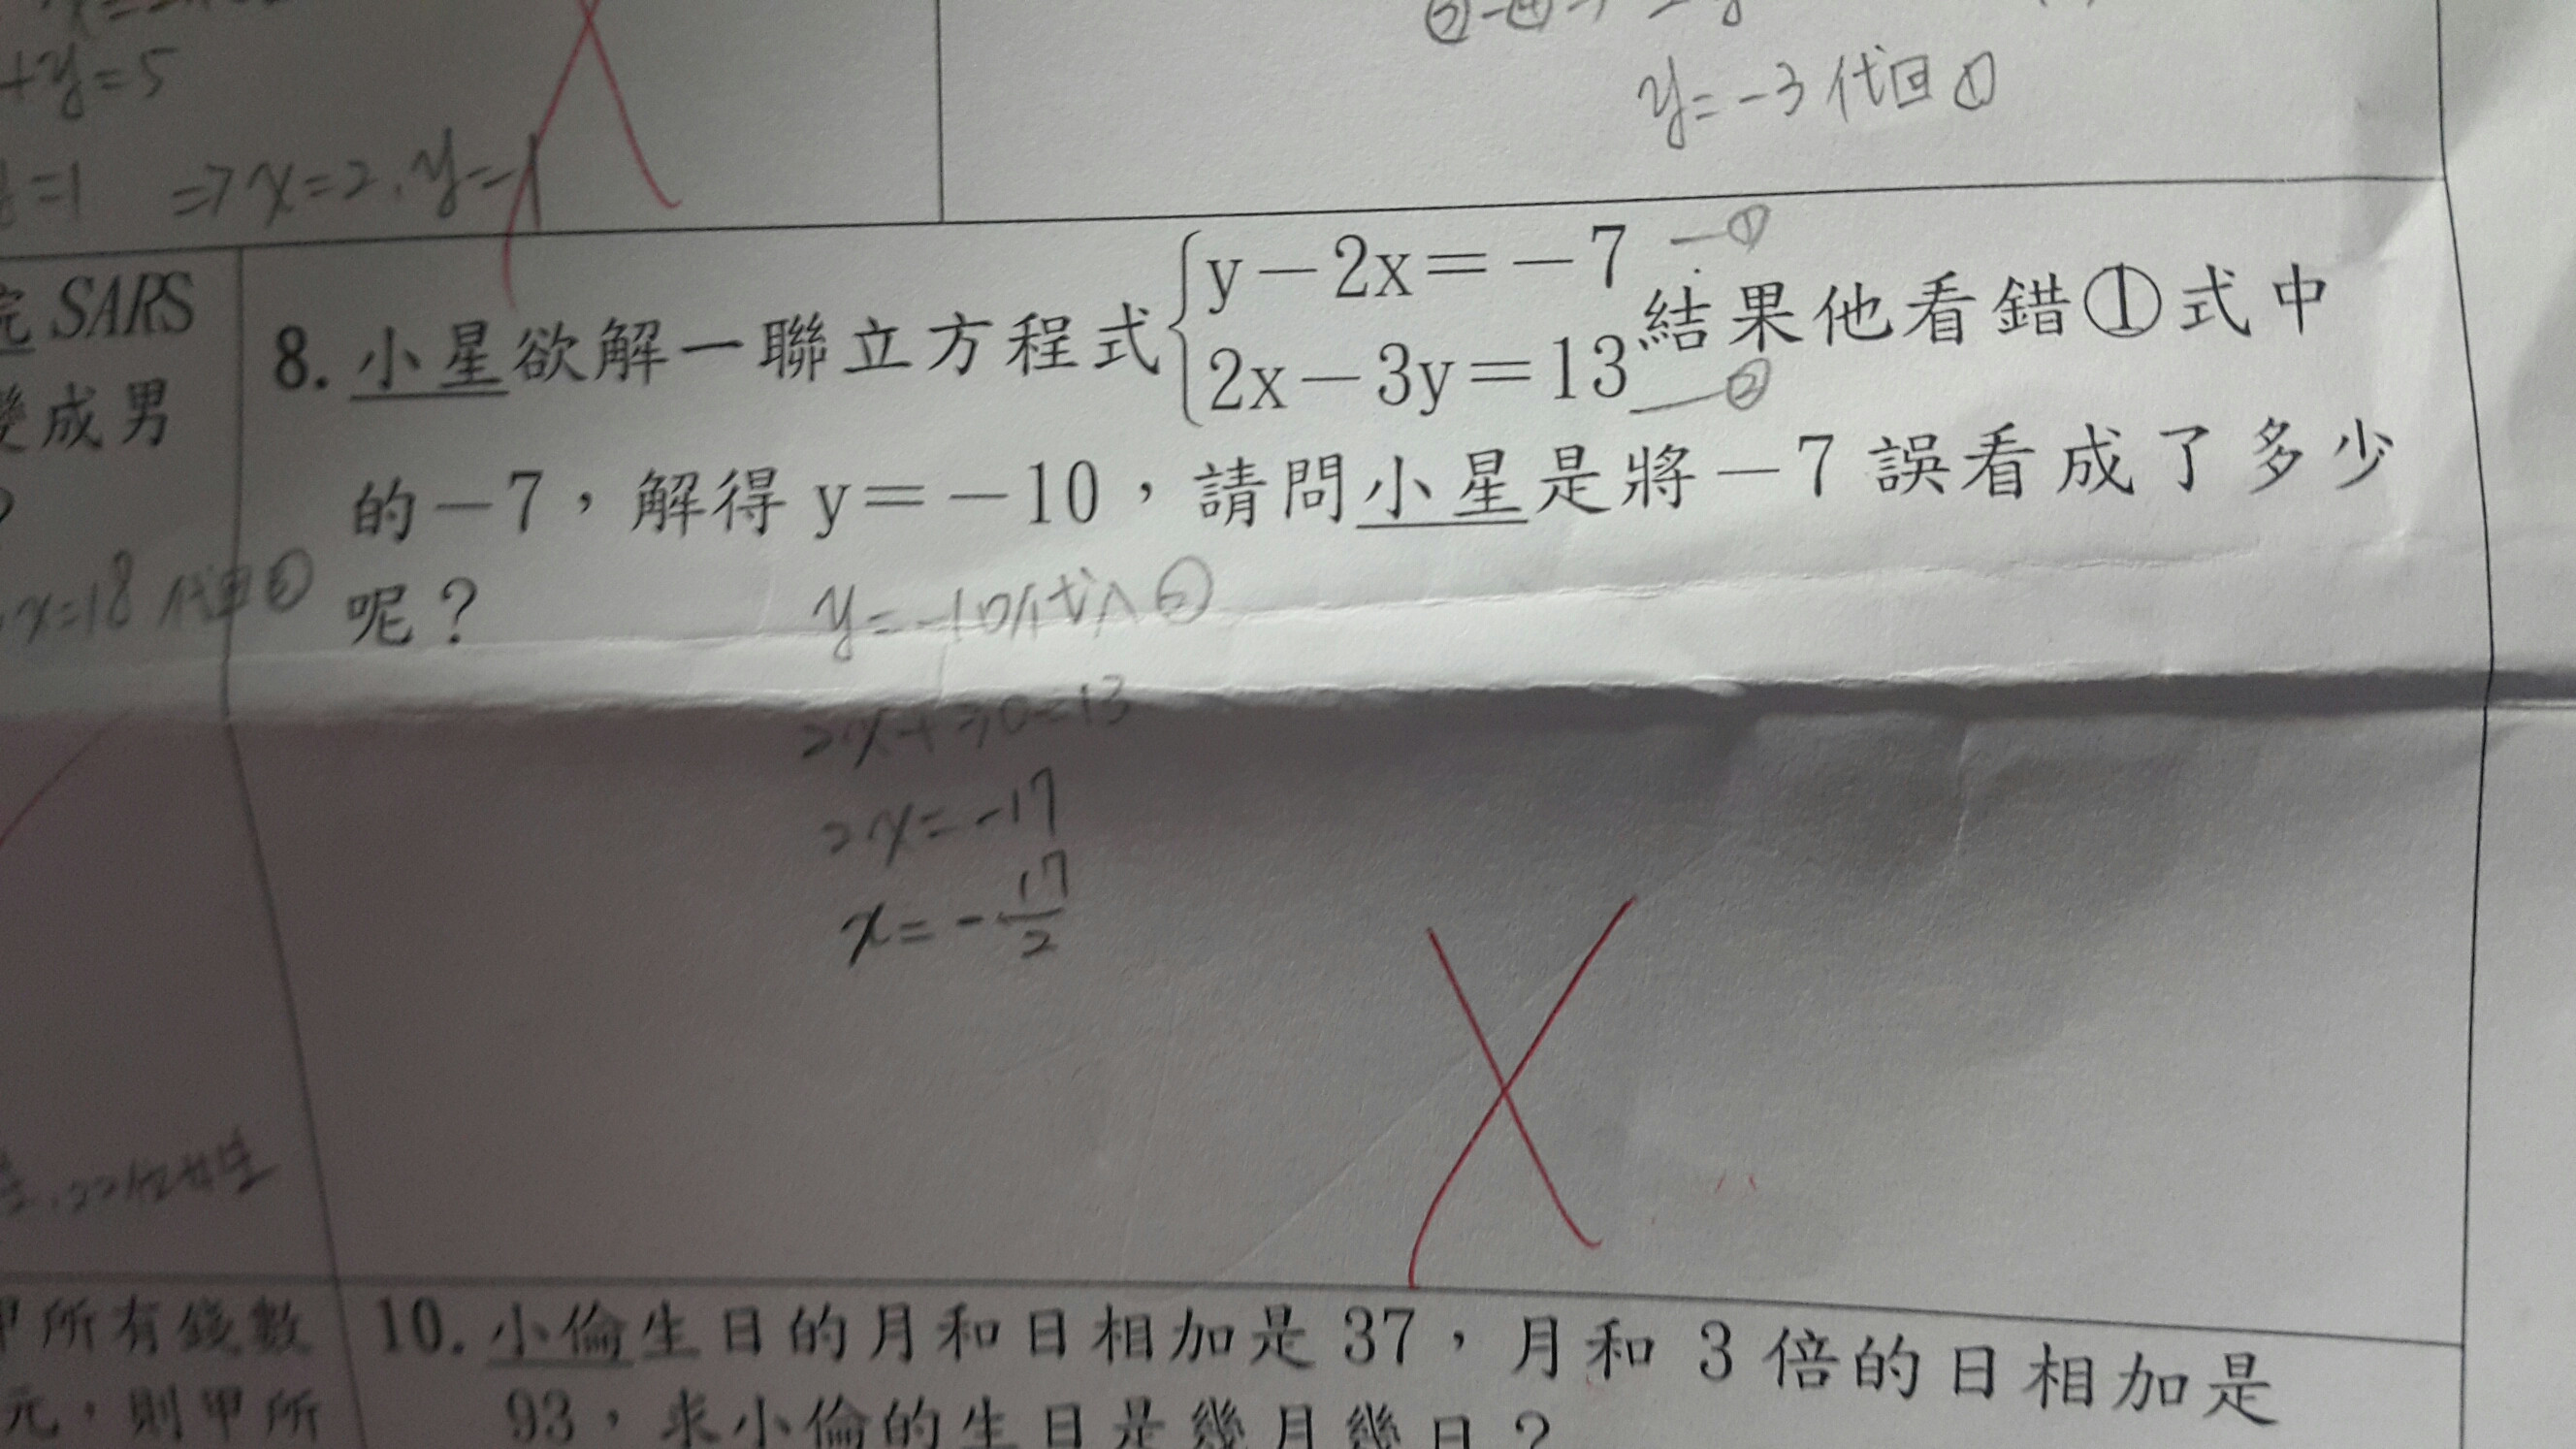 +y=5
y=-3代回①
=1 ⇒x=2.y=-1
SARS
成男
8. 小星欲解一聯立方程式{y-2x=-7 —①
2x-3y=13 —②
結果他看錯①式中
的-7，解得 y=-10，請問小星是將-7 誤看成了多少
呢？
x=18代回③
y=-10代入②
2x+30=13
2x=-17
x=-17/2
所有錢數
元，則甲所
10. 小倫生日的月和日相加是 37，月和 3 倍的日相加是
93，求小倫的生日是幾月幾日？